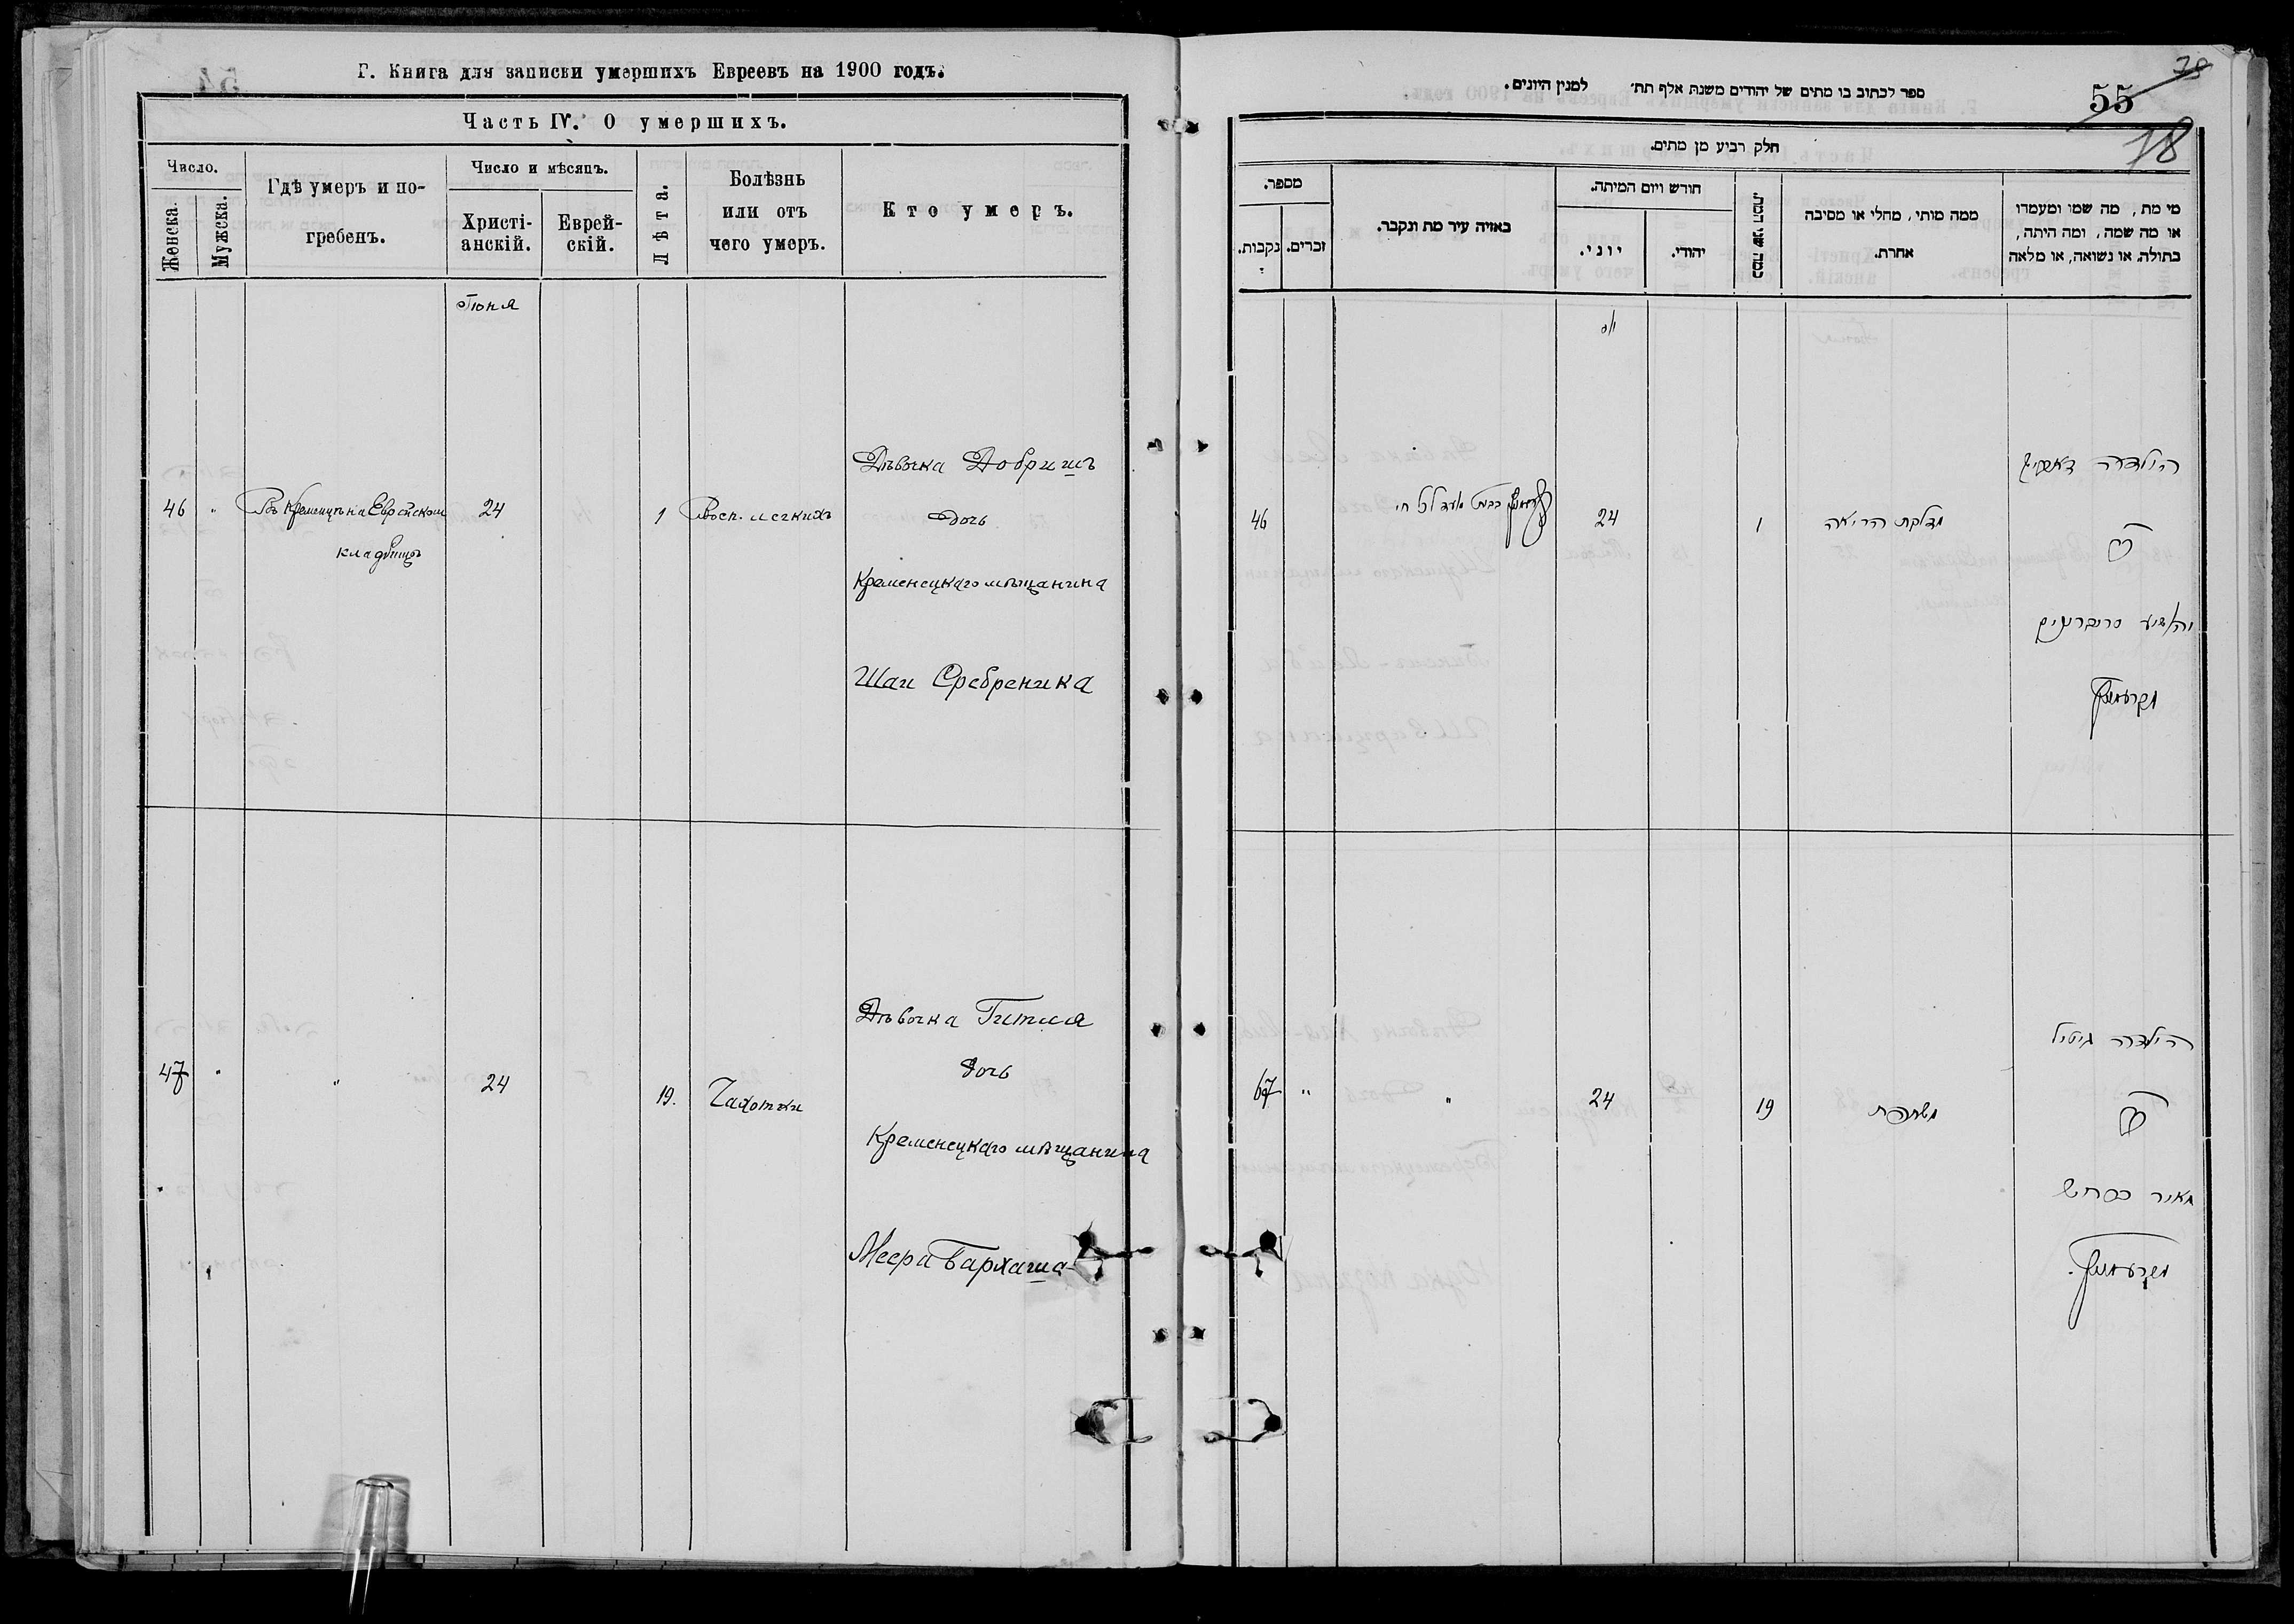 Г. Книга для записки умершихъ Евреевъ на 1900 годъ.
Часть IV. О умершихъ.
Число.
Женска.
Мужска.
Гдѣ умеръ и по-
гребенъ.
Число и мѣсяцъ.
Христі-
анскій.
Еврей-
скій.
Лѣта.
Болѣзнь
или отъ
чего умеръ.
Кто умеръ.
Іюня
46 " Въ Кременцѣ на Еврейском 24 1 Восп. легкихъ
кладбищѣ
Дѣвочка Добришъ
дочь
Кременецкаго мѣщанина
Шаи Сребреника
47 " " 24 19. Чахотки
Дѣвочка Гитля
дочь
Кременецкаго мѣщанина
Меера Бархаша
ספר לכתוב בו מתים של יהודים משנת אלף תת׳ למנין היונים.
55
78
78
חלק רביע מן מתים.
מספר.
נקבות.
זכרים.
באיזה עיר מת ונקבר.
חורש ויום המיתה.
יוני.
יהודי.
כמה שני המת.
ממה מותי, מחלי או מסיבה
אחרת.
מי מת, מה שמו ומעמדו
או מה שמה, ומה היתה,
בתולה או נשואה, או מלאה
46 24 1 מדלקת הריאה
הילדה
67 " " 24 19 משחפת
הילדה גיטיל
מאיר